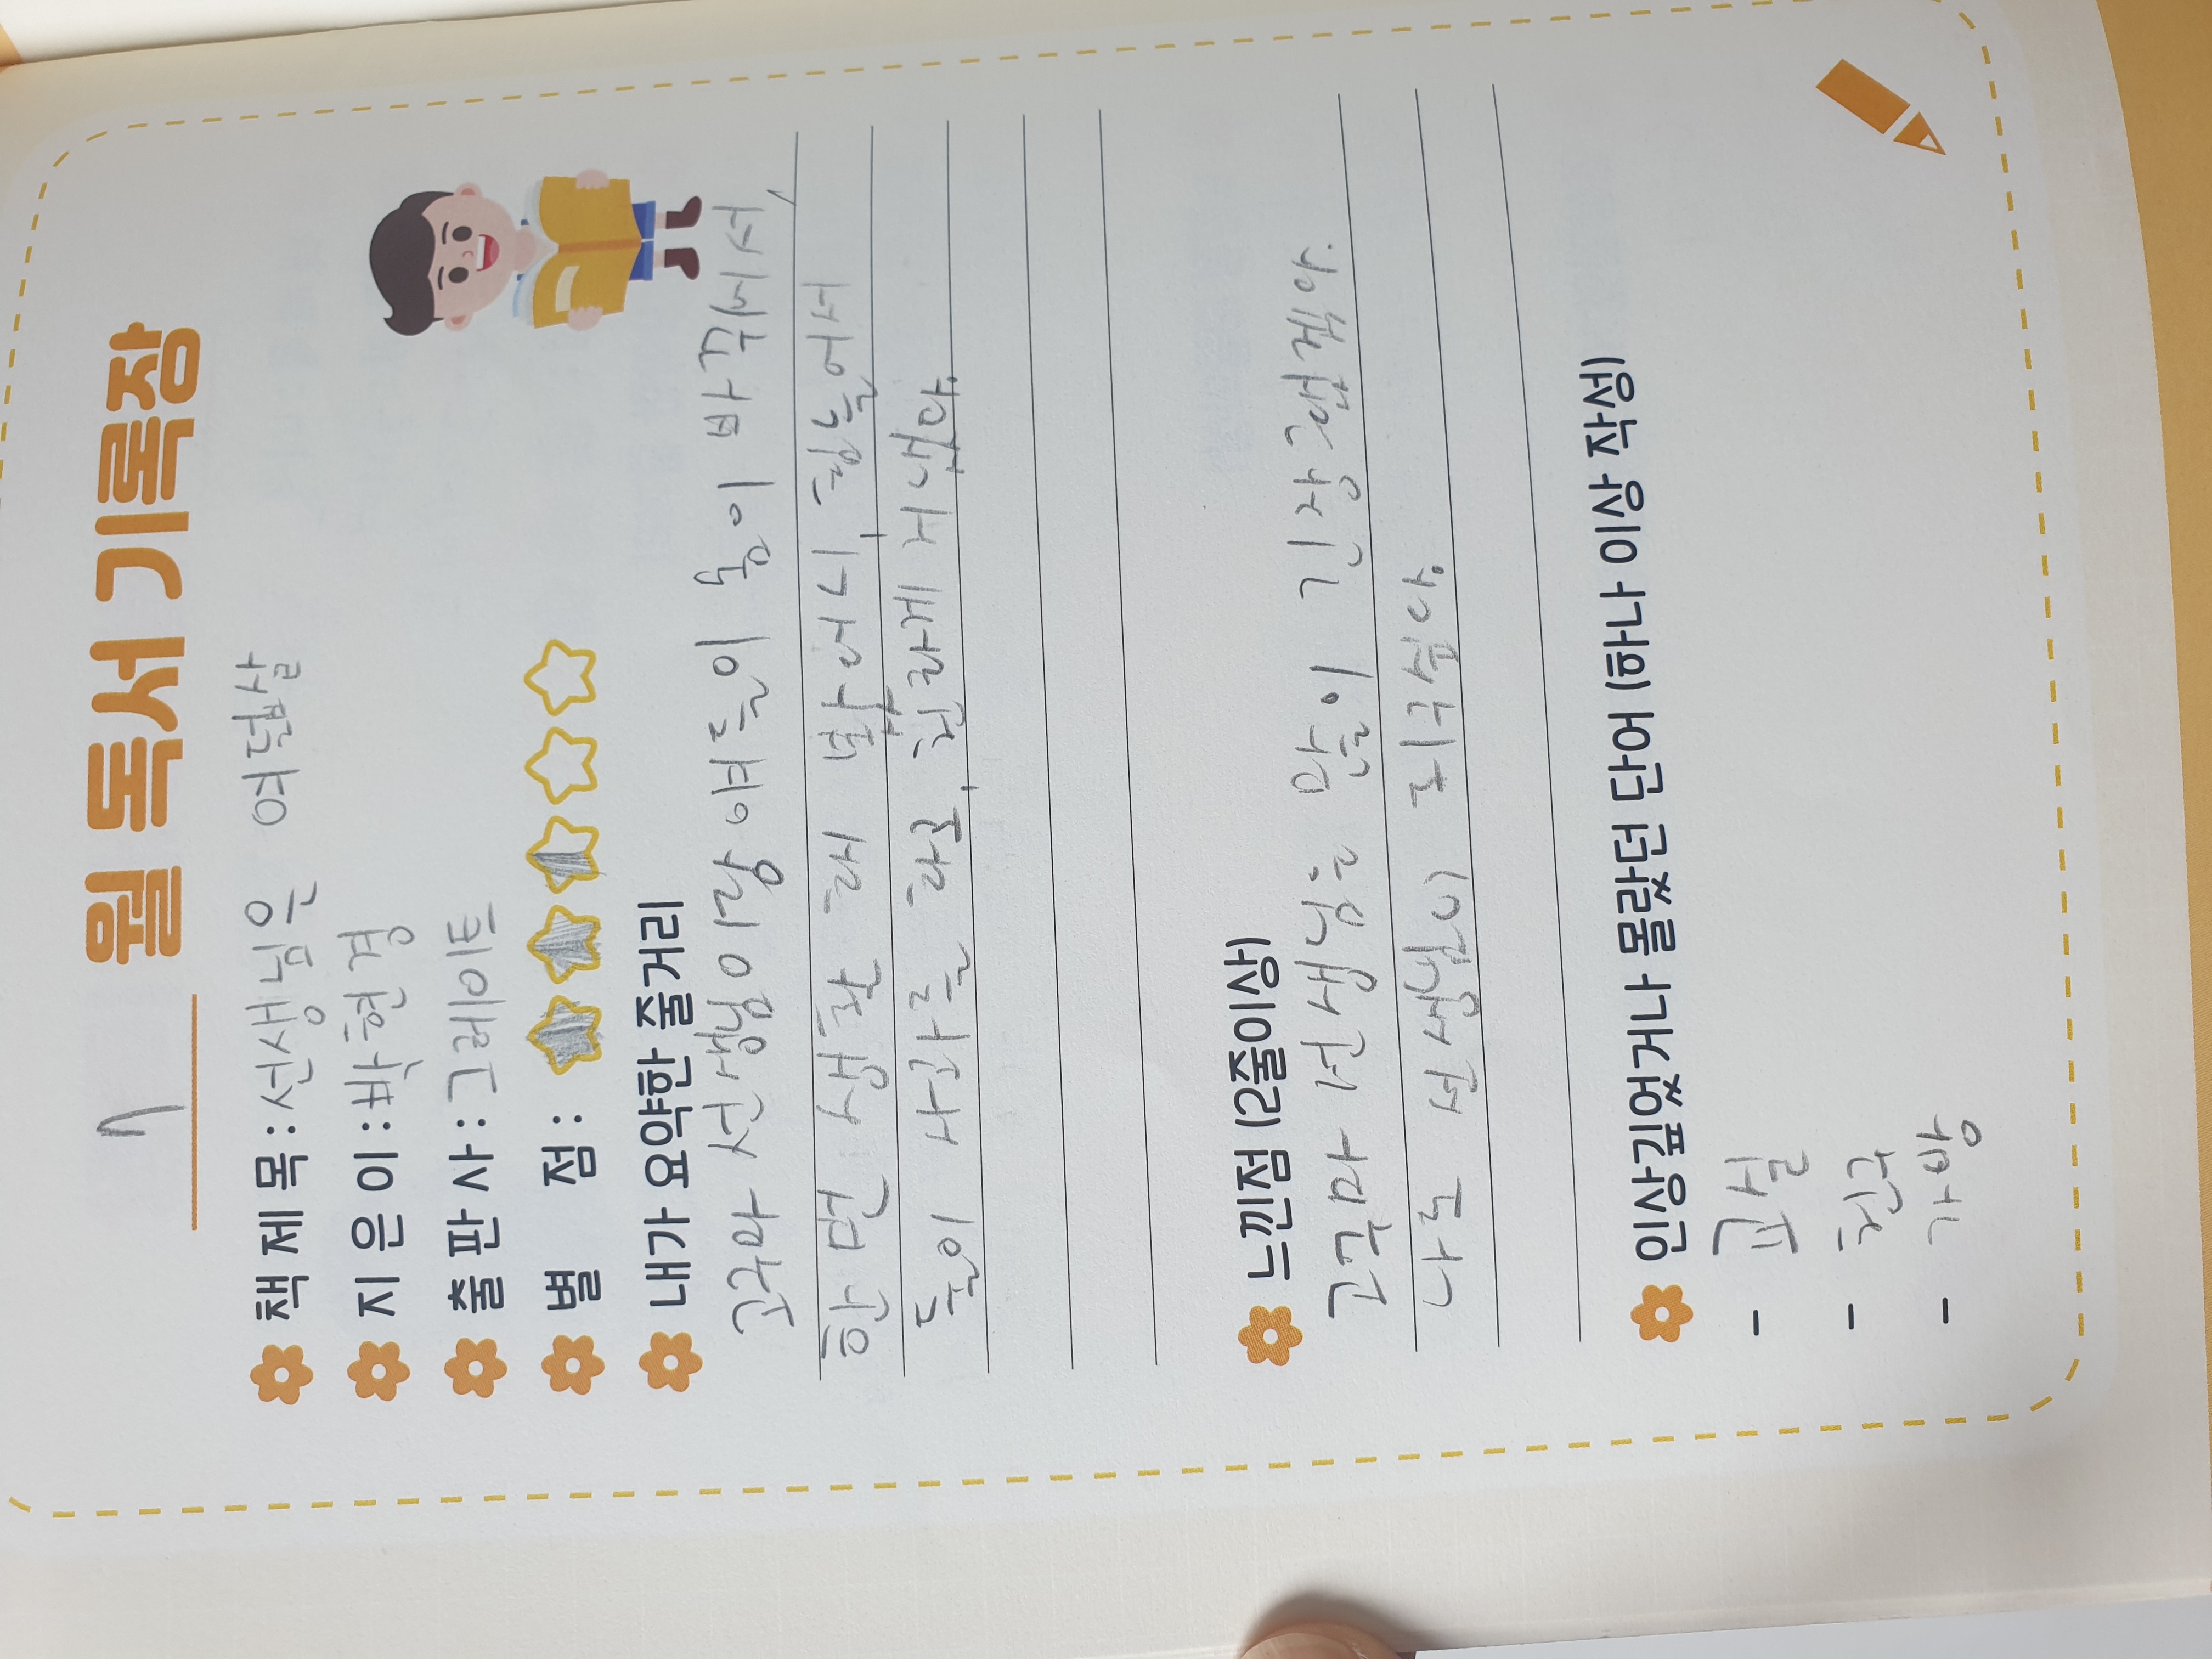 7월 독서기록장
책제목: 선생님은 여덟살
지은이: 박현경
출판사: 그레이트
별 점:
내가 요약한 줄거리
고구마 선생님이랑 여드름이 몸이 바뀌어서,
한 번 생활해 봤더니, 힘들어서
둘이 사과를 하고, 친하게 지낸다.
느낀점 (2줄이상)
고구마 선생님은 많이 긴장했겠다.
나도 선생님이 되고싶다.
인상깊었거나 몰랐던 단어 (하나 이상 작성)
- 교실
- 친구
- 가방